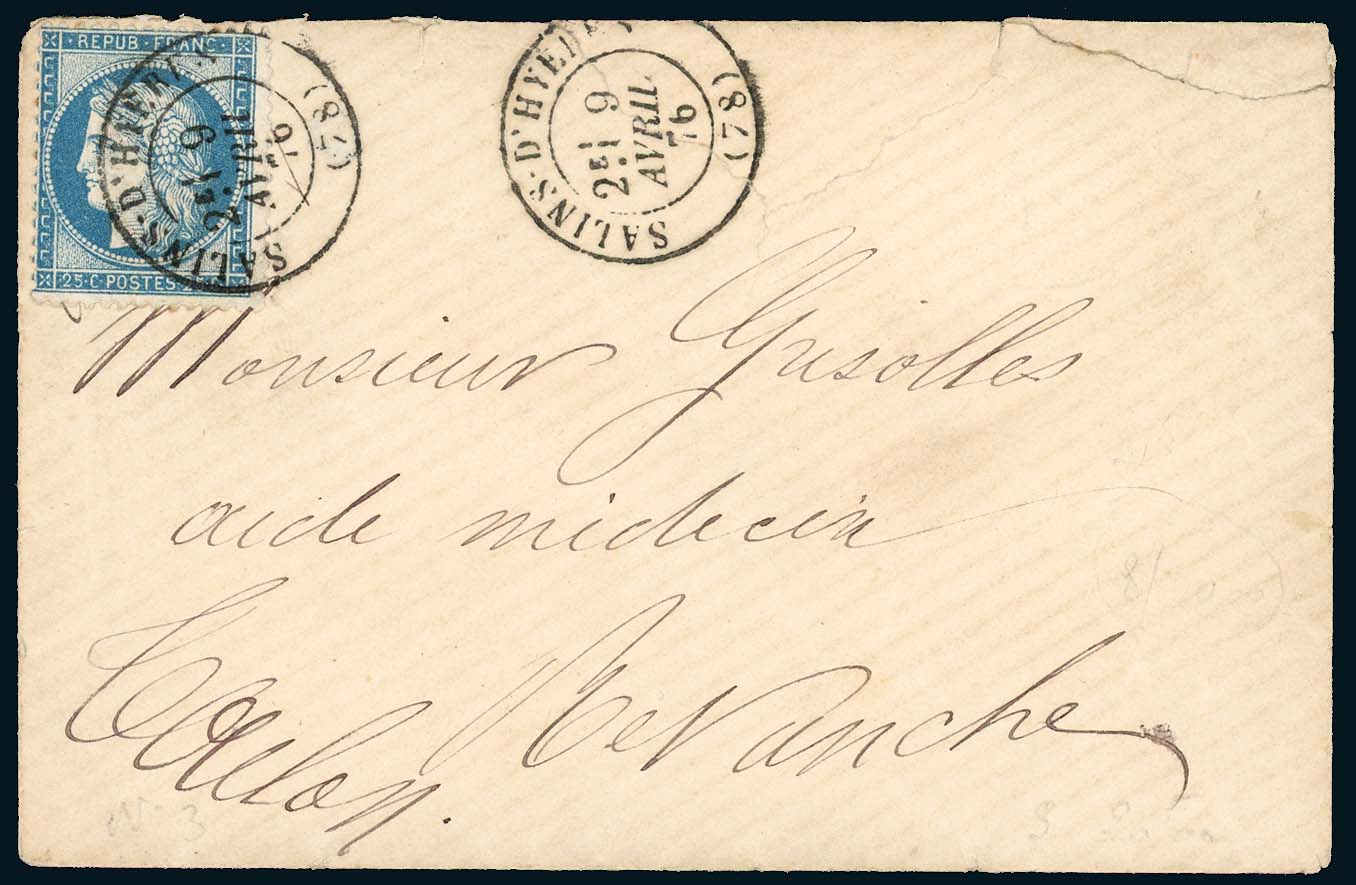 REPUB·FRANC·
25·C POSTES
SALINS-D'HYÈRES (78)
2E 9 AVRIL 76
SALINS-D'HYÈRES (78)
2E 9 AVRIL 76
Monsieur Grisolles
aide médecin
Revanche
Toulon.
N° 3